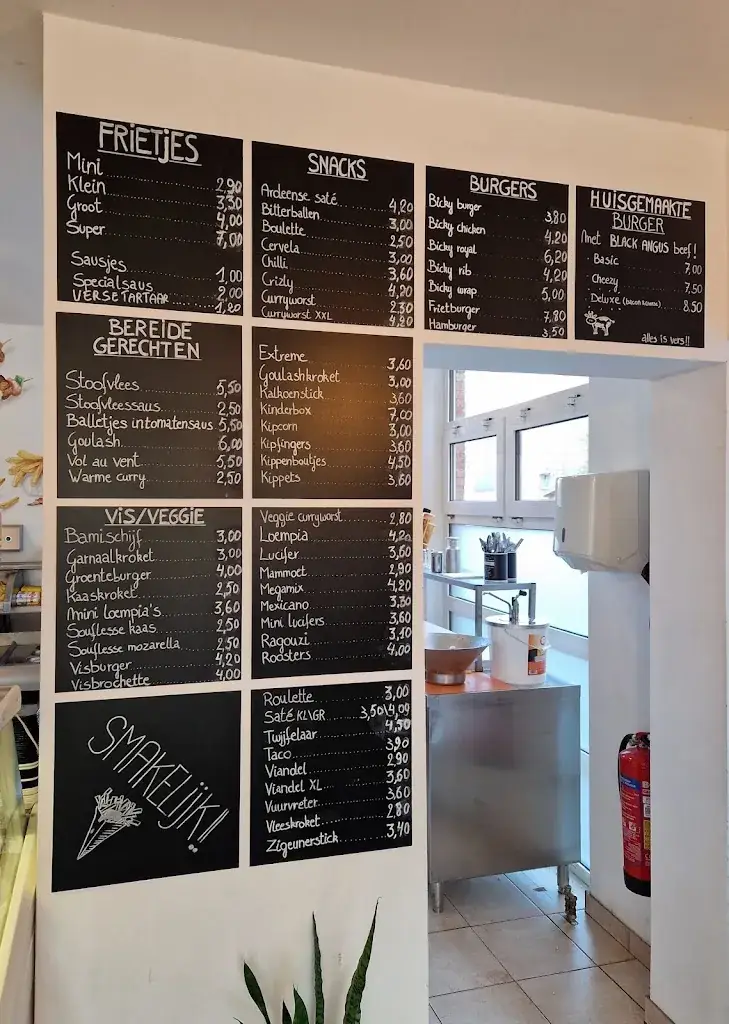 FRIETJES
Mini 2,90
Klein 3,30
Groot 4,00
Super 7,00
Sausjes 1,00
Specialsaus 2,00
VERSE TARTAAR 1,20
BEREIDE
GERECHTEN
Stoofvlees 5,50
Stoofvleessaus 2,50
Balletjes in tomatensaus 5,50
Goulash 6,00
Vol au vent 5,50
Warme curry 2,50
VIS/VEGGIE
Bamischijf 3,00
Garnaalkroket 3,00
Groenteburger 4,00
Kaaskroket 2,50
Mini loempia's 3,60
Souflesse kaas 2,50
Souflesse mozarella 2,50
Visburger 4,20
Visbrochette 4,00
SMAKELIJK!
SNACKS
Ardeense saté 4,20
Bitterballen 3,00
Boulette 2,50
Cervela 3,00
Chilli 3,60
Crizly 4,20
Curryworst 2,30
Curryworst XXL 4,20
Extreme 3,60
Goulashkroket 3,00
Kalkoenstick 3,60
Kinderbox 7,00
Kipcorn 3,00
Kipfingers 3,60
Kippenboutjes 4,50
Kippets 3,60
Veggie curryworst 2,80
Loempia 4,20
Lucifer 3,60
Mammoet 2,90
Megamix 4,20
Mexicano 3,30
Mini lucifers 3,60
Ragouzi 3,10
Roosters 4,00
Roulette 3,00
Saté KL\GR 3,50\4,09
Twijfelaar 4,50
Taco 3,90
Viandel 2,90
Viandel XL 3,60
Vuurvreter 3,60
Vleeskroket 2,80
Zigeunerstick 3,40
BURGERS
Bicky burger 3,80
Bicky chicken 4,20
Bicky royal 6,20
Bicky rib 4,20
Bicky wrap 5,00
Frietburger 7,80
Hamburger 3,50
HUISGEMAAKTE
BURGER
Met BLACK ANGUS beef!
· Basic 7,00
· Cheezy 7,50
· Deluxe 8,50
alles is vers!!